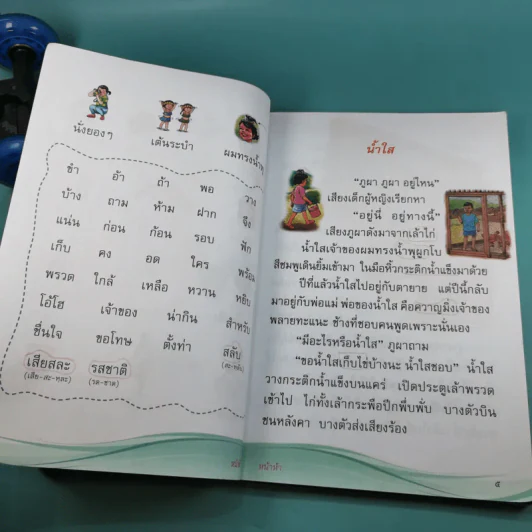 นั่งยองๆ
เต้นระบำ
ผมทรงน้ำพุ
ขำ อ้า ถ้า พอ วาง
บ้าง ถาม ห้าม ฝาก จึง
แน่น ก่อน ก้อน รอบ ฟัก
เก็บ คง อด ใคร พร้อม
พรวด ใกล้ เหลือ หวาน หยิบ
โอ้โฮ เจ้าของ น่ากิน สำหรับ
ชื่นใจ ขอโทษ ตั้งท่า สลับ
(สะ-หลับ)
เสียสละ รสชาติ
(เสีย-สะ-หละ) (รด-ชาด)
น้ำใส
“ภูผา ภูผา อยู่ไหน”
เสียงเด็กผู้หญิงเรียกหา
“อยู่นี่ อยู่ทางนี้”
เสียงภูผาดังมาจากเล้าไก่
น้ำใสเจ้าของผมทรงน้ำพุผูกโบ
สีชมพูเดินยิ้มเข้ามา ในมือหิ้วกระติกน้ำแข็งมาด้วย
ปีที่แล้วน้ำใสไปอยู่กับตายาย แต่ปีนี้กลับ
มาอยู่กับพ่อแม่ พ่อของน้ำใส คือควาญมิ่งเจ้าของ
พลายทะแนะ ช้างที่ชอบคนพูดเพราะนั่นเอง
“มีอะไรหรือน้ำใส” ภูผาถาม
“ขอน้ำใสเก็บไข่บ้างนะ น้ำใสชอบ” น้ำใส
วางกระติกน้ำแข็งบนแคร่ เปิดประตูเล้าพรวด
เข้าไป ไก่ทั้งเล้ากระพือปีกพึ่บพั่บ บางตัวบิน
ชนหลังคา บางตัวส่งเสียงร้อง
๕